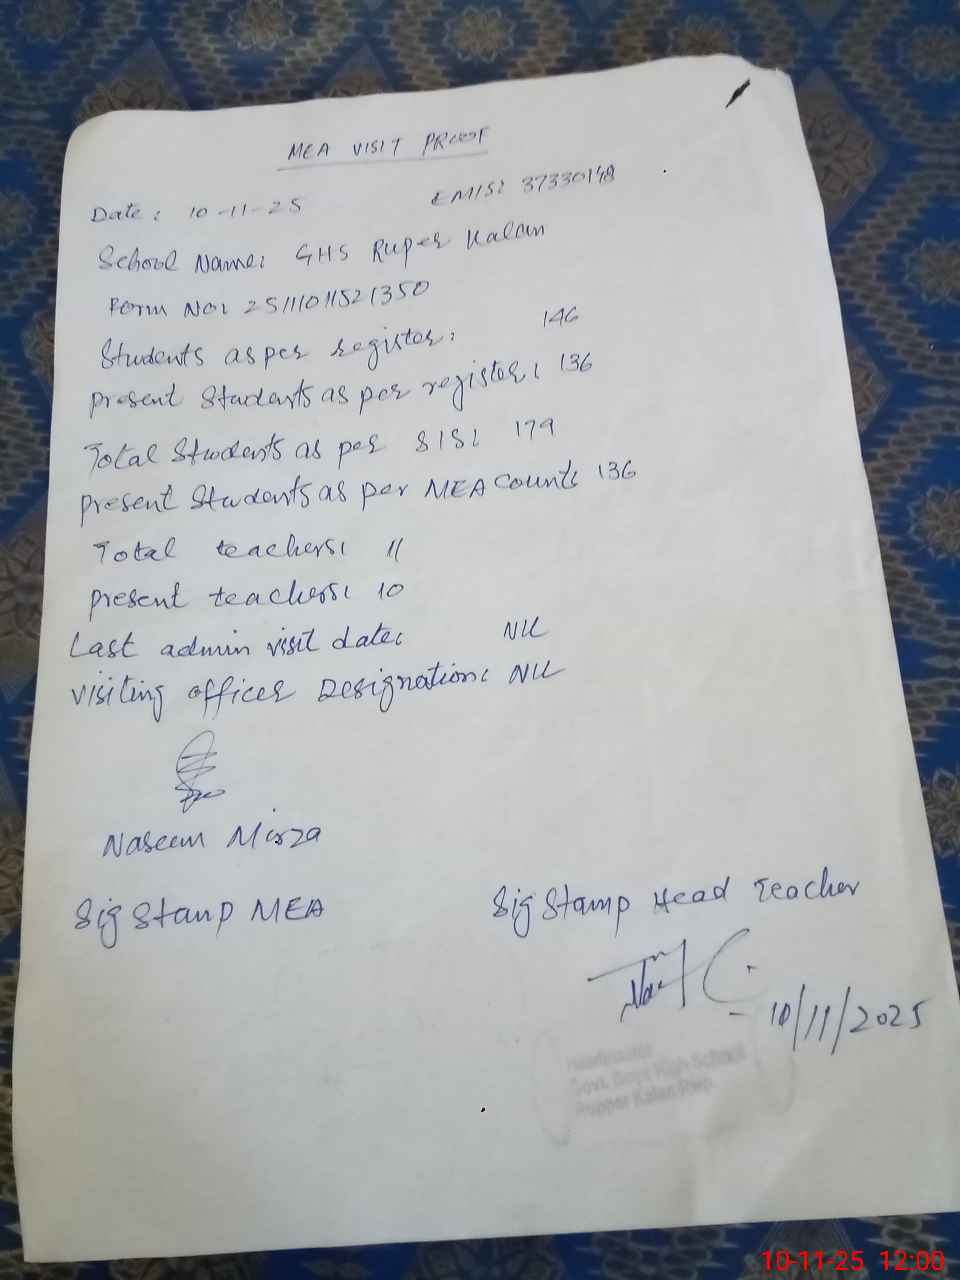 MEA VISIT PROOF
Date: 10-11-25 EMIS: 37330148
School Name: GHS Ruper Kalan
Form No: 25111011521350
Students as per register: 146
Present Students as per register: 136
Total Students as per SIS: 179
Present Students as per MEA Count: 136
Total teachers: 11
Present teachers: 10
Last admin visit date: Nil
Visiting officer Designation: Nil
Naseem Mirza
Sig Stamp MEA
Sig Stamp Head Teacher
10/11/2025
Headmaster
Govt. Boys High School
Rupper Kalan Rwp
10-11-25 12:00